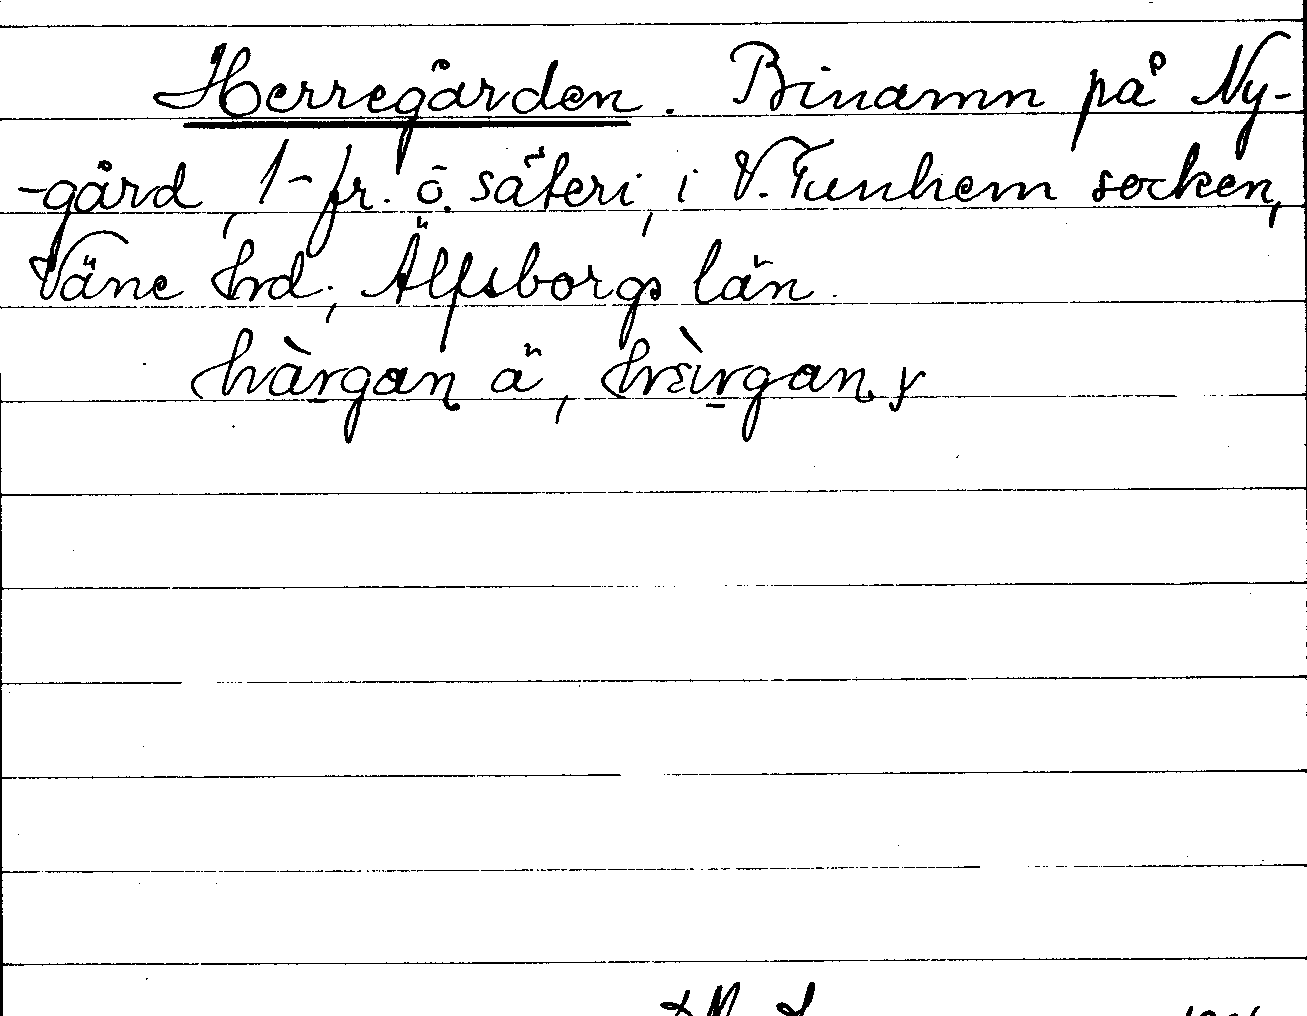 Herregården. Binamn på Ny-
-gård, 1-fr. ö. säteri, i V. Tunhem socken,
Väne hrd; Älfsborgs län.
hàrgan ä, hràrgan y